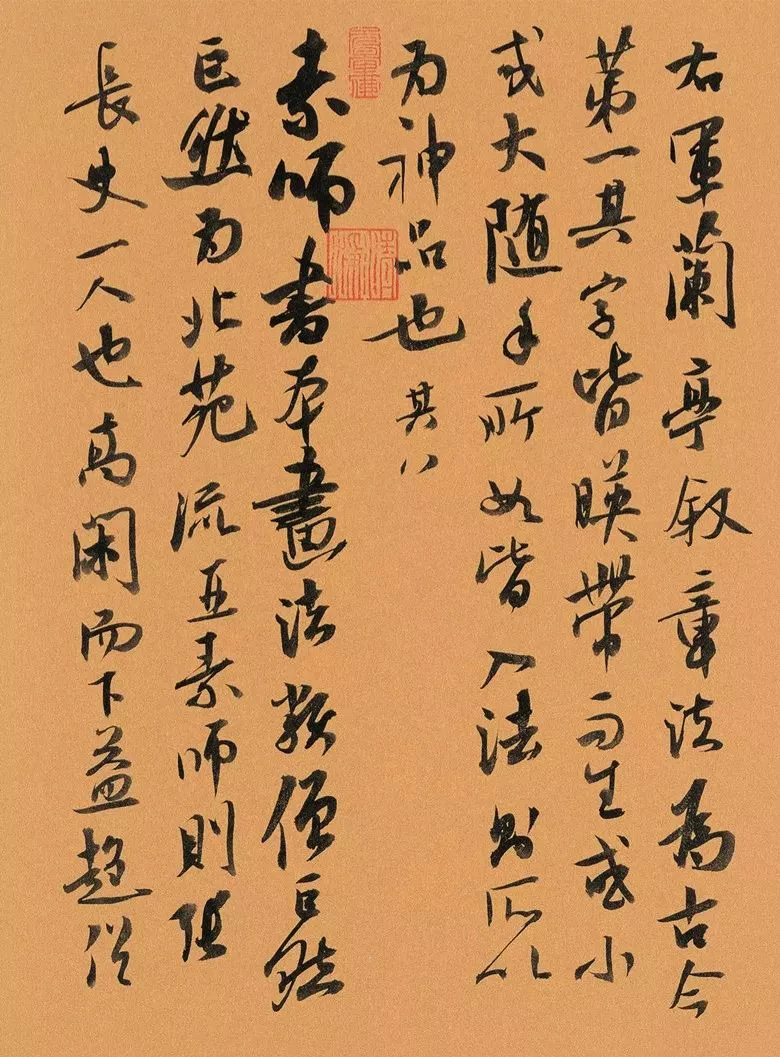 右軍蘭亭叙章法為古今
苐一其字皆暎帶而生或小
或大随手所如皆入法則所以
為神品也 其八
素師書本畫法類僧巨然
巨然為北苑流亞素師則張
長史一人也高閑而下益趨俗